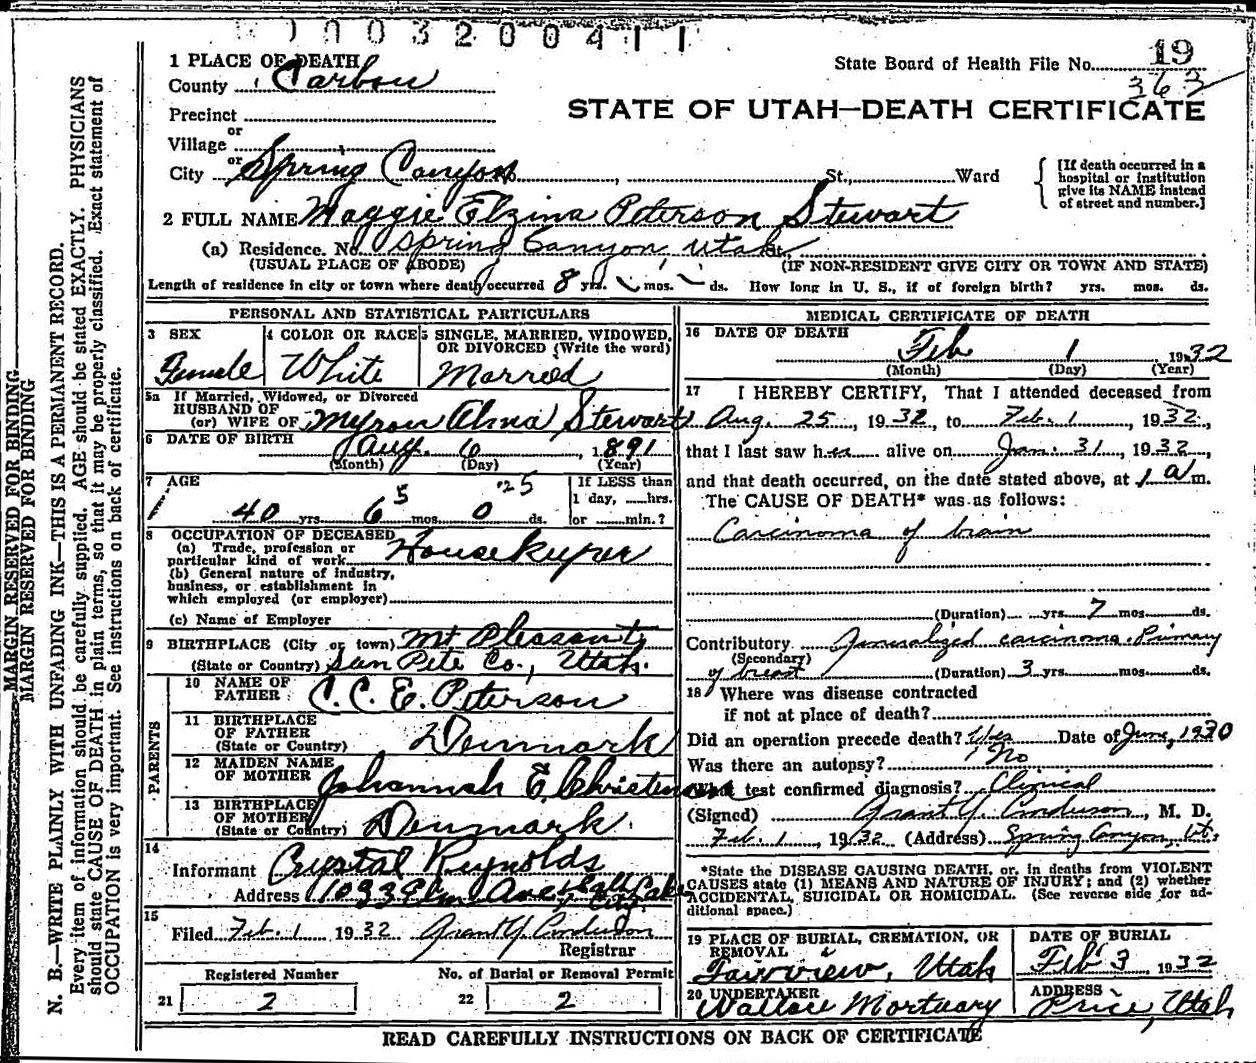 0003200411
1 PLACE OF DEATH
County Carbon
State Board of Health File No. 19
363
Precinct
STATE OF UTAH—DEATH CERTIFICATE
or
Village
or
City Spring Canyon No. , St., Ward
[If death occurred in a hospital or institution give its NAME instead of street and number.]
2 FULL NAME Maggie Elzina Peterson Stewart
(a) Residence. No. Spring Canyon, Utah St.,
(USUAL PLACE OF ABODE) (IF NON-RESIDENT GIVE CITY OR TOWN AND STATE)
Length of residence in city or town where death occurred 8 yrs. mos. ds. How long in U. S., if of foreign birth? yrs. mos. ds.
PERSONAL AND STATISTICAL PARTICULARS
3 SEX 4 COLOR OR RACE 5 SINGLE, MARRIED, WIDOWED,
OR DIVORCED (Write the word)
Female White Married
5a If Married, Widowed, or Divorced
HUSBAND OF
(or) WIFE OF Myron Alma Stewart
6 DATE OF BIRTH
Aug. 6, 1891
(Month) (Day) (Year)
7 AGE If LESS than
1 day, hrs.
or min.?
5 25
40 yrs 6 mos 0 ds.
8 OCCUPATION OF DECEASED
(a) Trade, profession or
particular kind of work Housekeeper
(b) General nature of industry,
business, or establishment in
which employed (or employer)
(c) Name of Employer
9 BIRTHPLACE (City or town) Mt Pleasant
(State or Country) San Pete Co., Utah.
PARENTS
10 NAME OF
FATHER C. C. E. Peterson
11 BIRTHPLACE
OF FATHER
(State or Country) Denmark
12 MAIDEN NAME
OF MOTHER Johannah E. Christensen
13 BIRTHPLACE
OF MOTHER
(State or Country) Denmark.
14
Informant Crystal Reynolds
Address 1033 Elm Ave Salt Lake
City
15
Filed Feb. 1 1932 Grant Y. Anderson
Registrar
Registered Number No. of Burial or Removal Permit
21 2 22 2
MEDICAL CERTIFICATE OF DEATH
16 DATE OF DEATH
Feb 1 1932
(Month) (Day) (Year)
17 I HEREBY CERTIFY, That I attended deceased from
Aug. 25, 1932, to Feb. 1, 1932,
that I last saw her alive on Jan. 31, 1932,
and that death occurred, on the date stated above, at 1 a m.
The CAUSE OF DEATH* was as follows:
Carcinoma of brain
(Duration) yrs. 7 mos. ds.
Contributory Generalized carcinoma. Primary
(Secondary)
of breast (Duration) 3 yrs. mos. ds.
18 Where was disease contracted
if not at place of death?
Did an operation precede death? Yes Date of June, 1930
Was there an autopsy? No
What test confirmed diagnosis? Clinical
(Signed) Grant Y. Anderson, M. D.
Feb. 1 1932 (Address) Spring Canyon, Ut.
*State the DISEASE CAUSING DEATH, or, in deaths from VIOLENT
CAUSES state (1) MEANS AND NATURE OF INJURY; and (2) whether
ACCIDENTAL, SUICIDAL OR HOMICIDAL. (See reverse side for ad-
ditional space.)
19 PLACE OF BURIAL, CREMATION, OR
REMOVAL
Fairview, Utah
DATE OF BURIAL
Feb 3 1932
20 UNDERTAKER
Wallace Mortuary
ADDRESS
Price, Utah
READ CAREFULLY INSTRUCTIONS ON BACK OF CERTIFICATE
MARGIN RESERVED FOR BINDING
MARGIN RESERVED FOR BINDING
N. B.—WRITE PLAINLY WITH UNFADING INK—THIS IS A PERMANENT RECORD.
Every item of information should be carefully supplied. AGE should be stated EXACTLY. PHYSICIANS
should state CAUSE OF DEATH in plain terms, so that it may be properly classified. Exact statement of
OCCUPATION is very important. See instructions on back of certificate.